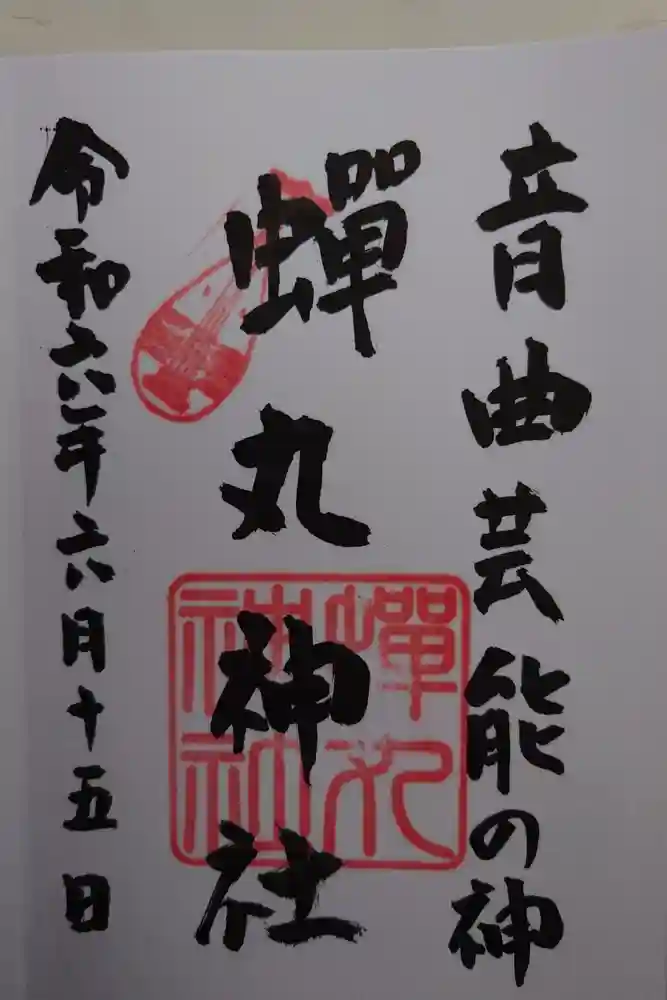 音曲芸能の神
蟬丸神社
令和六年六月十五日
蟬丸神社